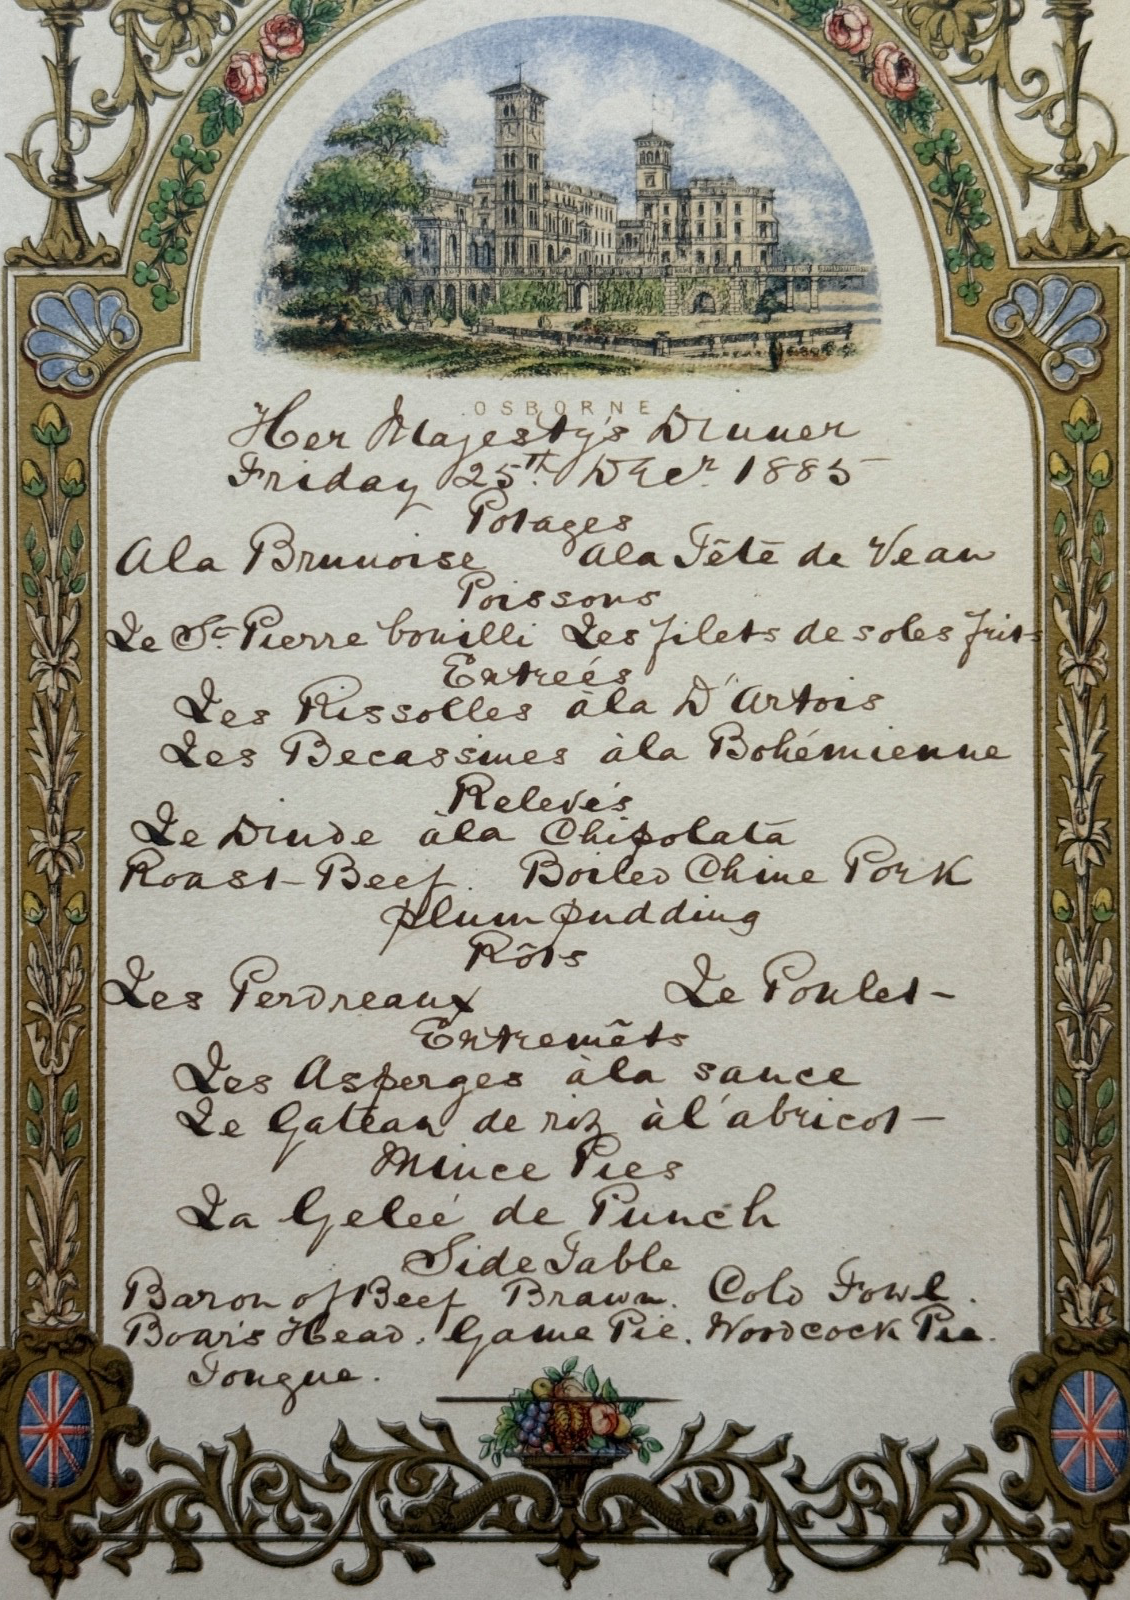 OSBORNE
Her Majesty's Dinner
Friday 25th. Decr. 1885
Potages
A la Brunoise à la Tête de Veau
Poissons
Le St. Pierre bouilli Les filets de soles frits
Entreés
Les Rissolles àla D'Artois
Les Becassines àla Bohémienne
Relevés
Le Dinde àla Chipolata
Roast-Beef. Boiled Chine Pork
plum pudding
Rôts
Les Perdreaux Le Poulet-
Entremêts
Les Asperges àla sauce
Le Gateau de riz à l'abricot-
Mince Pies
La Geleé de Punch
Side Table
Baron of Beef Brawn. Cold Fowl.
Boar's Head. Game Pie. Woodcock Pie.
Tongue.